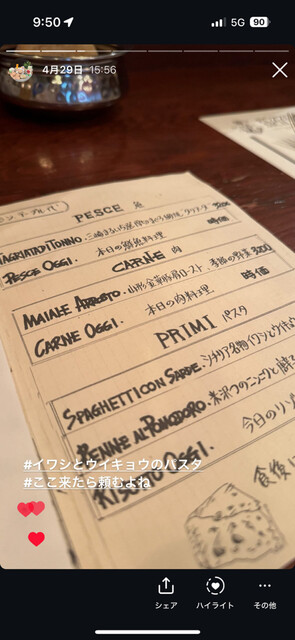 9:50
5G 90
4月29日 15:56
PESCE 魚
TAGLIATA DI TONNO.
3200
PESCE OGGI. 本日の鮮魚料理 時価
CARNE 肉
MAIALE ARROSTO. 山形金華豚肩ロースト 季節の野菜 3200
CARNE OGGI. 本日の肉料理 時価
PRIMI パスタ
SPAGHETTI CON SARDE. シチリア名物イワシとウイキョウ
PENNE AL POMODORO.
RISOTTO OGGI. 今日のリゾ
#イワシとウイキョウのパスタ
#ここ来たら頼むよね
食後に
シェア
ハイライト
その他